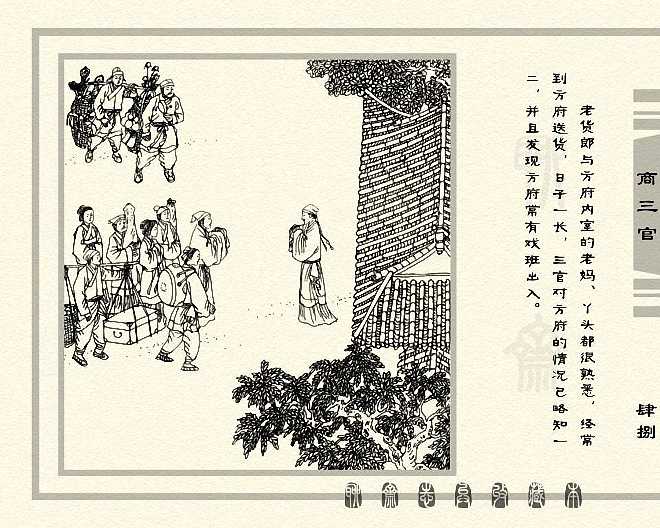 老货郎与方府内室的老妈、丫头都很熟悉，经常
到方府送货，日子一长，三官对方府的情况已略知一
二，并且发现方府常有戏班出入。
商三官
肆捌